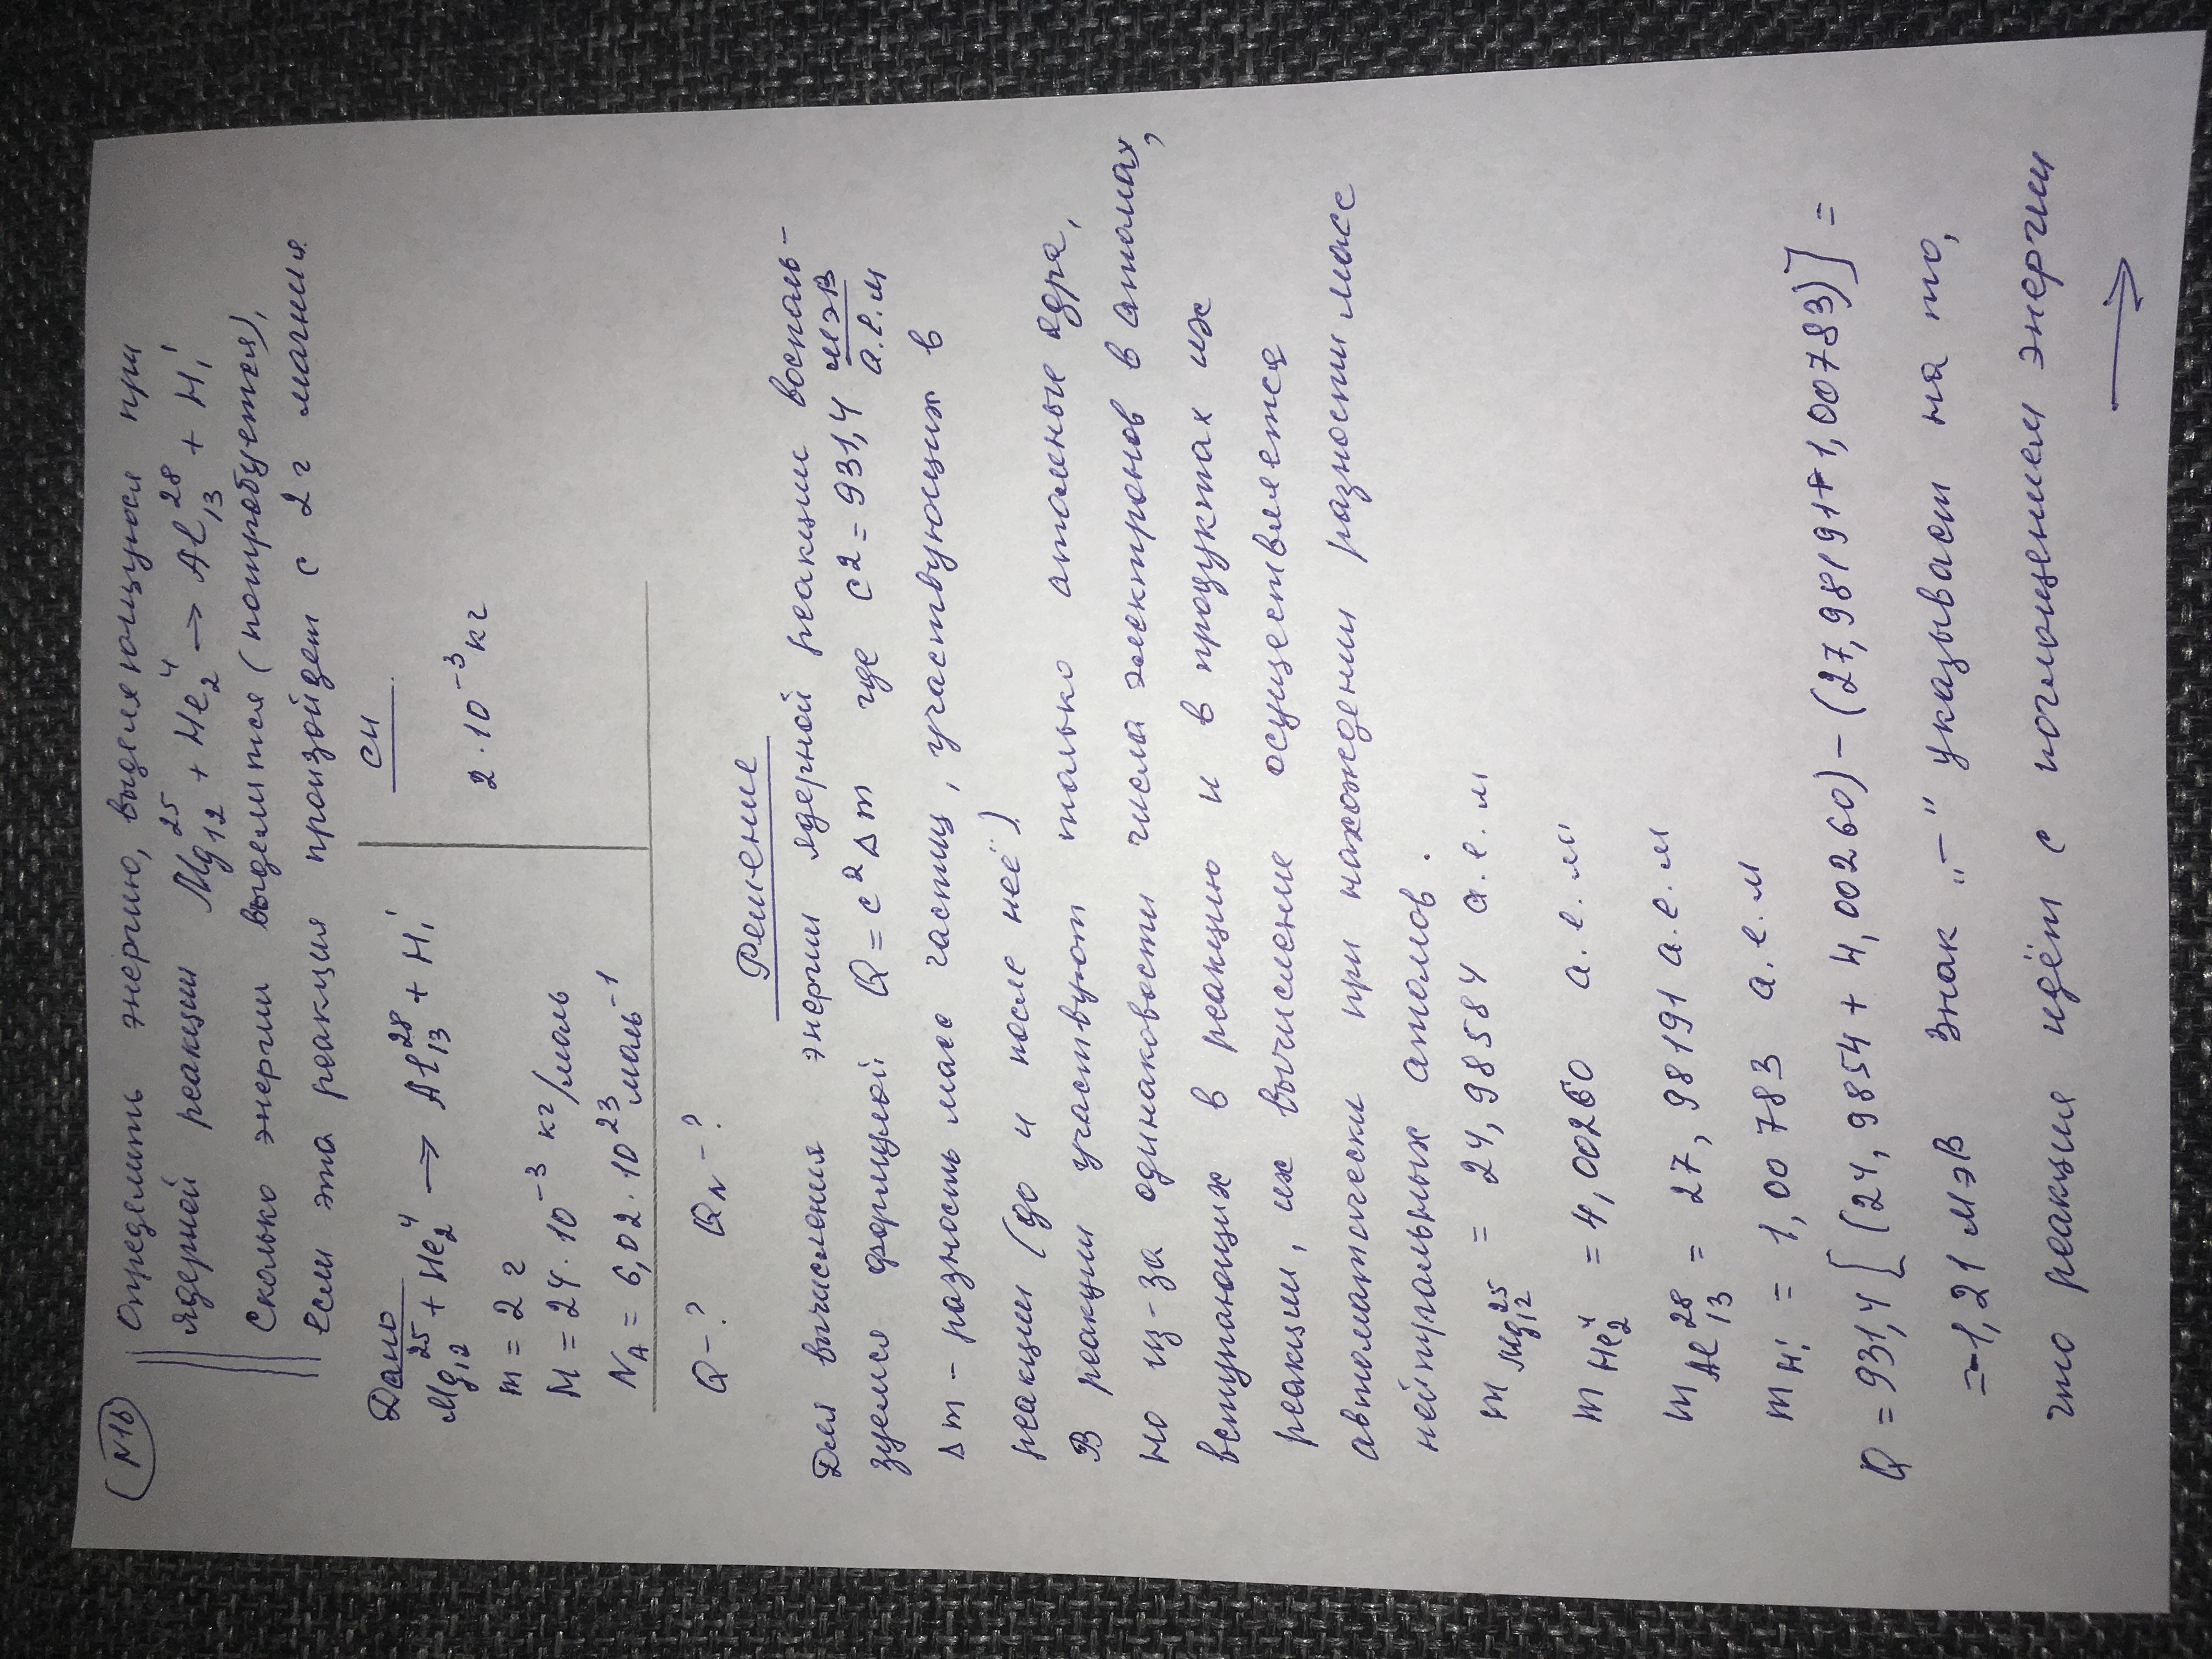 №16
Определить энергию, выделяющуюся при
ядерной реакции Mg₁₂²⁵ + He₂⁴ → Al₁₃²⁸ + H₁¹
Сколько энергии выделится (потребуется),
если эта реакция произойдет с 2г магния
Дано
СИ
Mg₁₂²⁵ + He₂⁴ → Al₁₃²⁸ + H₁¹
m = 2 г
2·10⁻³ кг
M = 24·10⁻³ кг/моль
N_A = 6,02·10²³ моль⁻¹
Q-? Q_N-?
Решение
Для вычисления энергии ядерной реакции восполь-
зуемся формулой Q = c²Δm где c2 = 931,4 МэВ/а.е.м
Δm - разность масс частиц, участвующих в
реакции (до и после неё)
В реакции участвуют только атомные ядра,
но из-за одинаковости числа электронов в атомах,
вступающих в реакцию и в продуктах их
реакции, их вычисление осуществляется
автоматически при нахождении разности масс
нейтральных атомов.
m Mg₁₂²⁵ = 24,98584 а.е.м
m He₂⁴ = 4,00260 а.е.м
m Al₁₃²⁸ = 27,98191 а.е.м
m H₁¹ = 1,00783 а.е.м
Q = 931,4 [(24,9854 + 4,00260) - (27,98191+1,00783)] =
= -1,21 МэВ Знак "-" указывает на то,
что реакция идёт с поглощением энергии
→